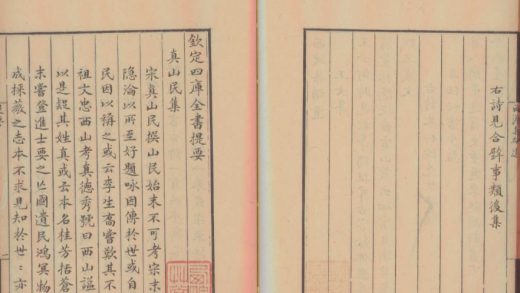 右詩見合璧事類後集
欽定四庫全書提要
真山民集
宋真山民撰山民始末不可考宋末
隱淪以所至好題詠因傳於世或自
民因以稱之或云李生喬嘗歎其不
祖文忠西山考真德秀號曰西山諡
以是疑其姓真或云本名桂芳括蒼
末嘗登進士要之亡國遺民鴻冥物
成採薇之志本不求見知於世〻亦